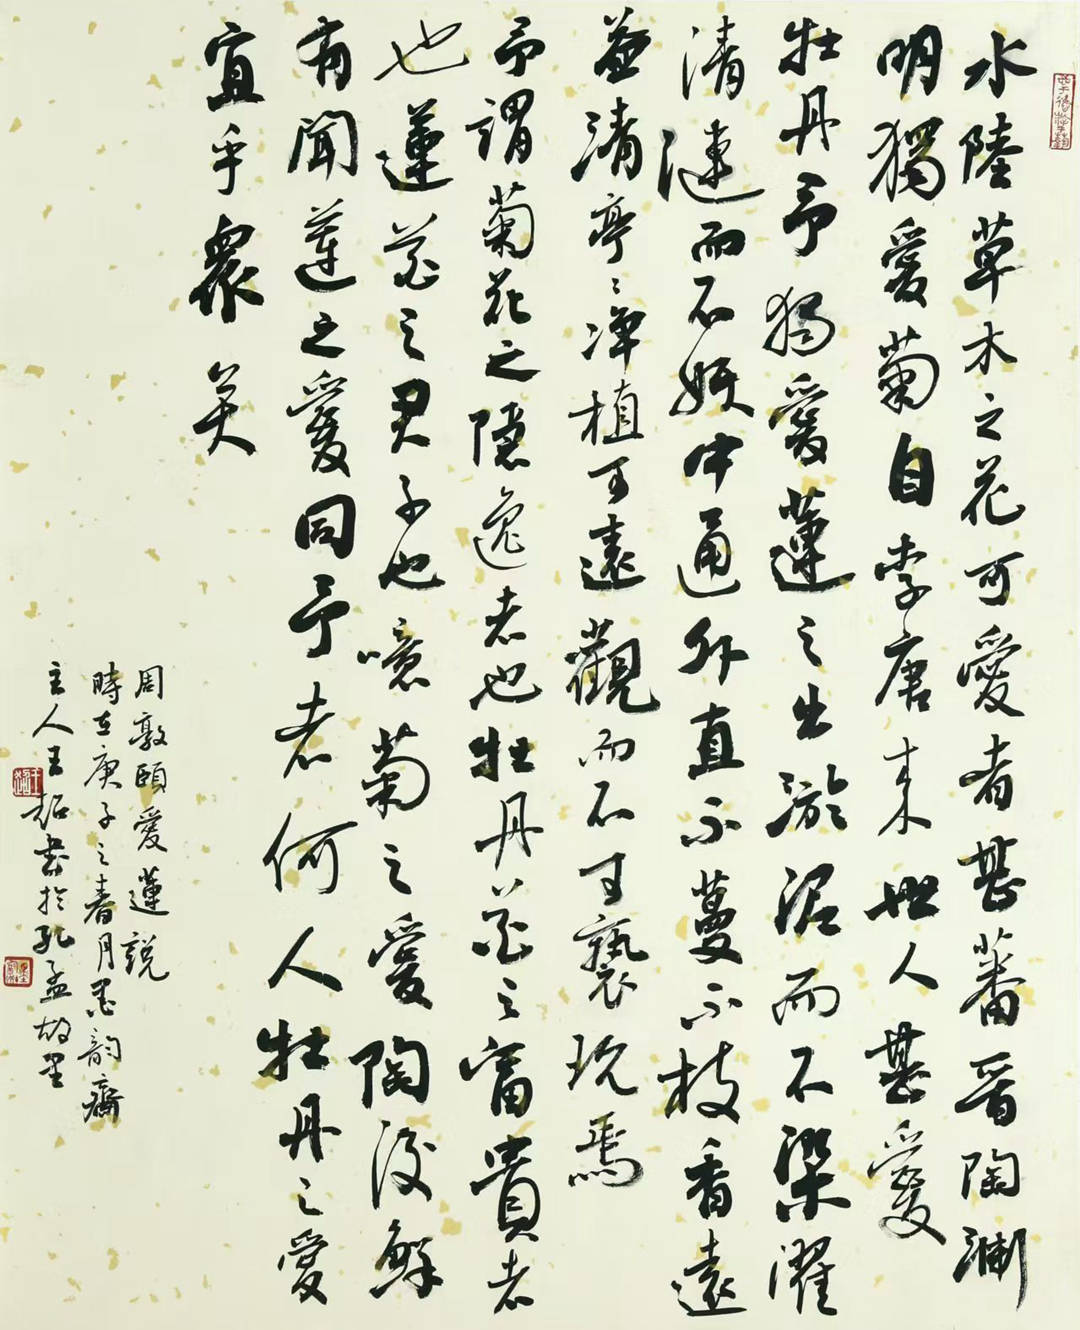 水陸草木之花可愛者甚蕃晉陶淵
明獨愛菊自李唐来世人甚愛
牡丹予獨愛蓮之出淤泥而不染濯
清漣而不妖中通外直不蔓不枝香遠
益清亭〻淨植可遠觀而不可褻玩焉
予謂菊花之隱逸者也牡丹花之富貴者
也蓮花之君子也噫菊之愛陶後鮮
有聞蓮之愛同予者何人牡丹之愛
宜乎衆矣
周敦頤愛蓮説
時在庚子之春月墨韵齋
主人王書於孔孟故里